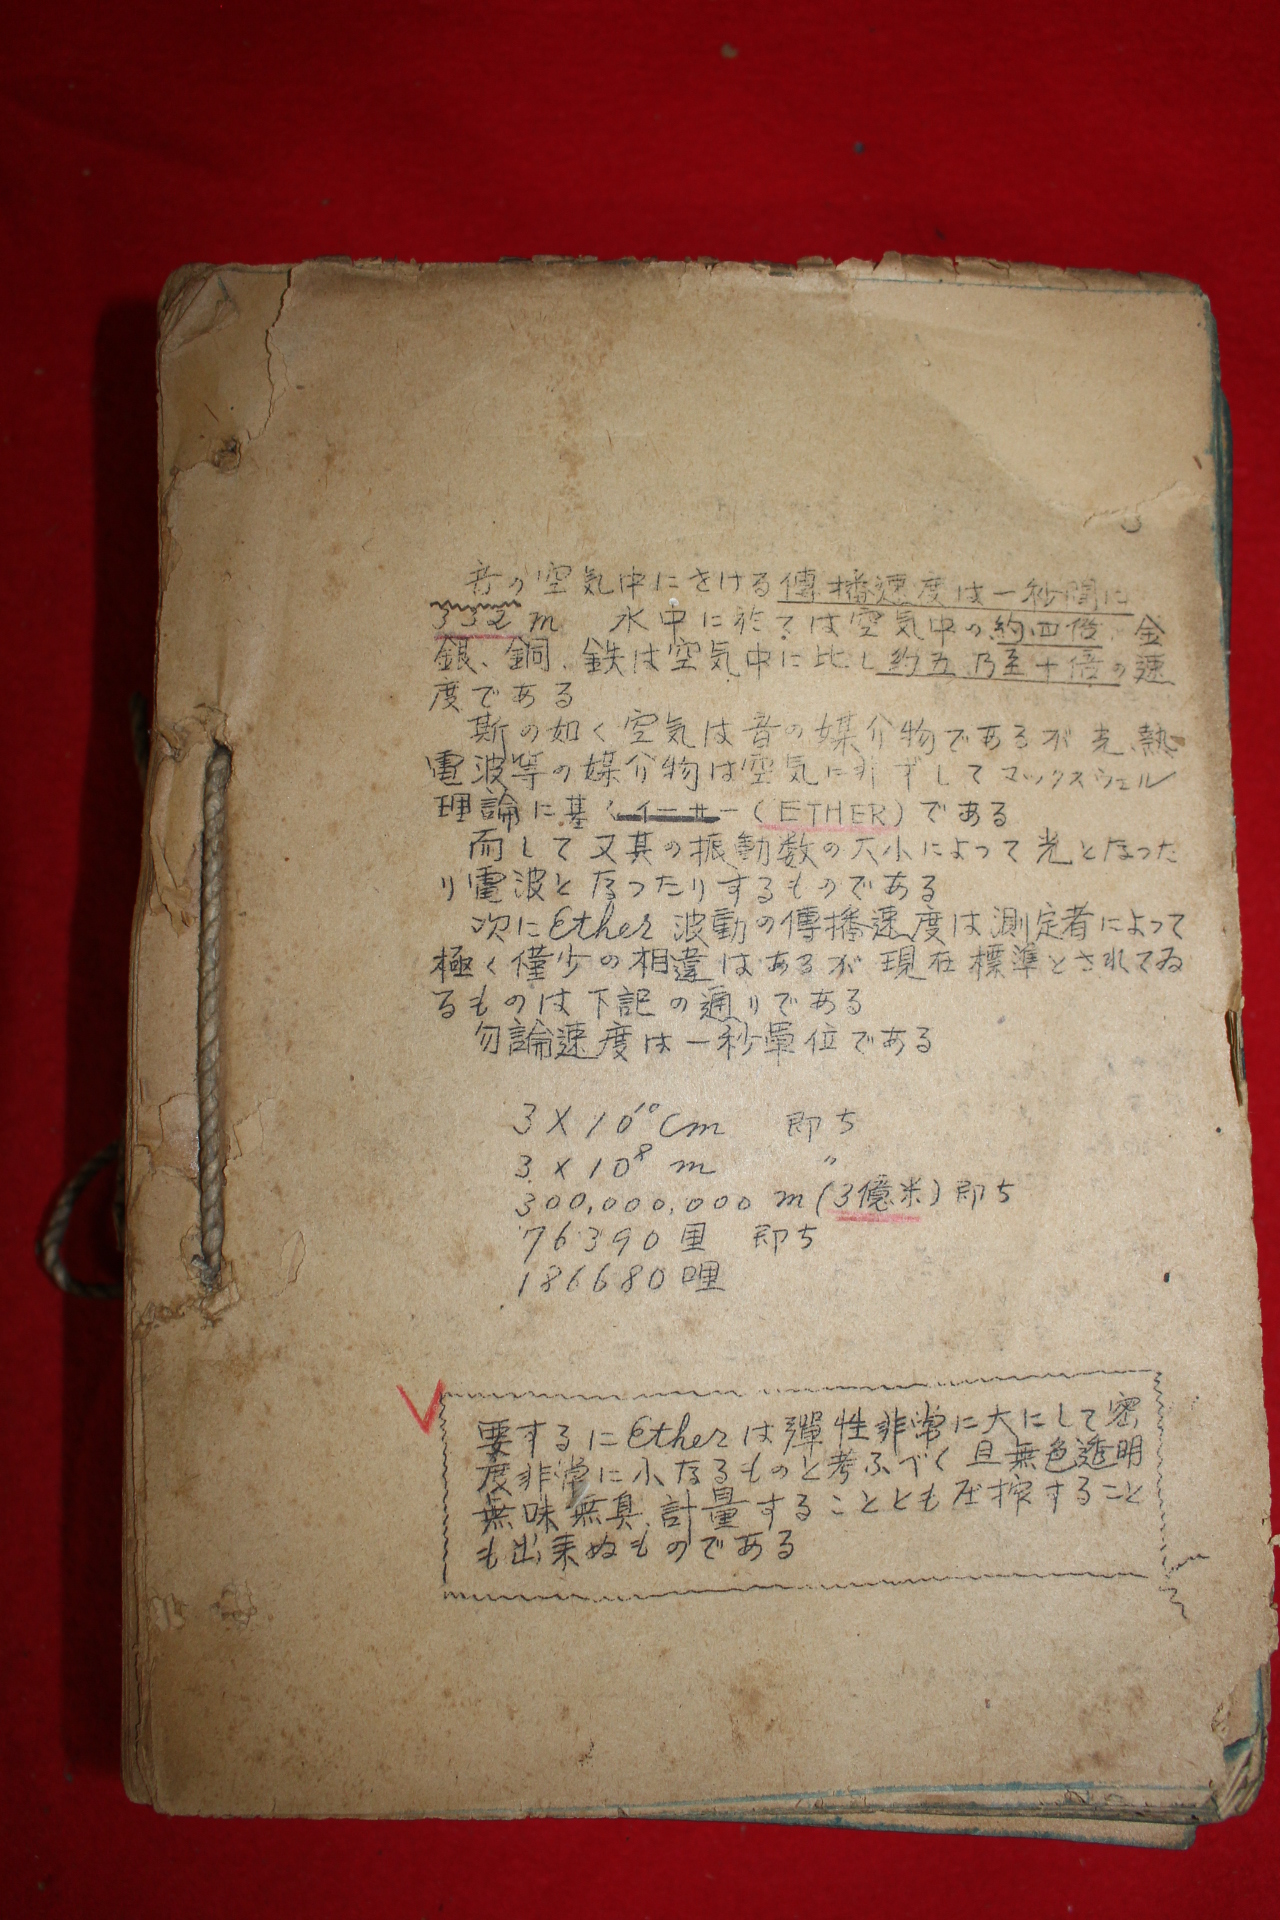 3
音の空気中にきける傳播速度は一秒間に
332m 水中に於ては空気中の約四倍、金
銀、銅、鉄は空気中に比し約五乃至十倍の速
度である
斯の如く空気は音の媒介物であるが光、熱
電波等の媒介物は空気に非ずしてマックスウェル
理論に基くイーサー(ETHER)である
而して又其の振動数の大小によって光となった
り電波となったりするものである
次にEther波動の傳播速度は測定者によって
極く僅少の相違はあるが現在標準とされてゐ
るものは下記の通りである
勿論速度は一秒單位である
3×10¹⁰cm 即ち
3×10⁸m 〃
300,000,000m(3億米)即ち
76390里 即ち
186680哩
要するにEtherは彈性非常に大にして密
度非常に小なるものと考ふべく且無色透明
無味無臭、計量することとも圧搾すること
も出来ぬものである